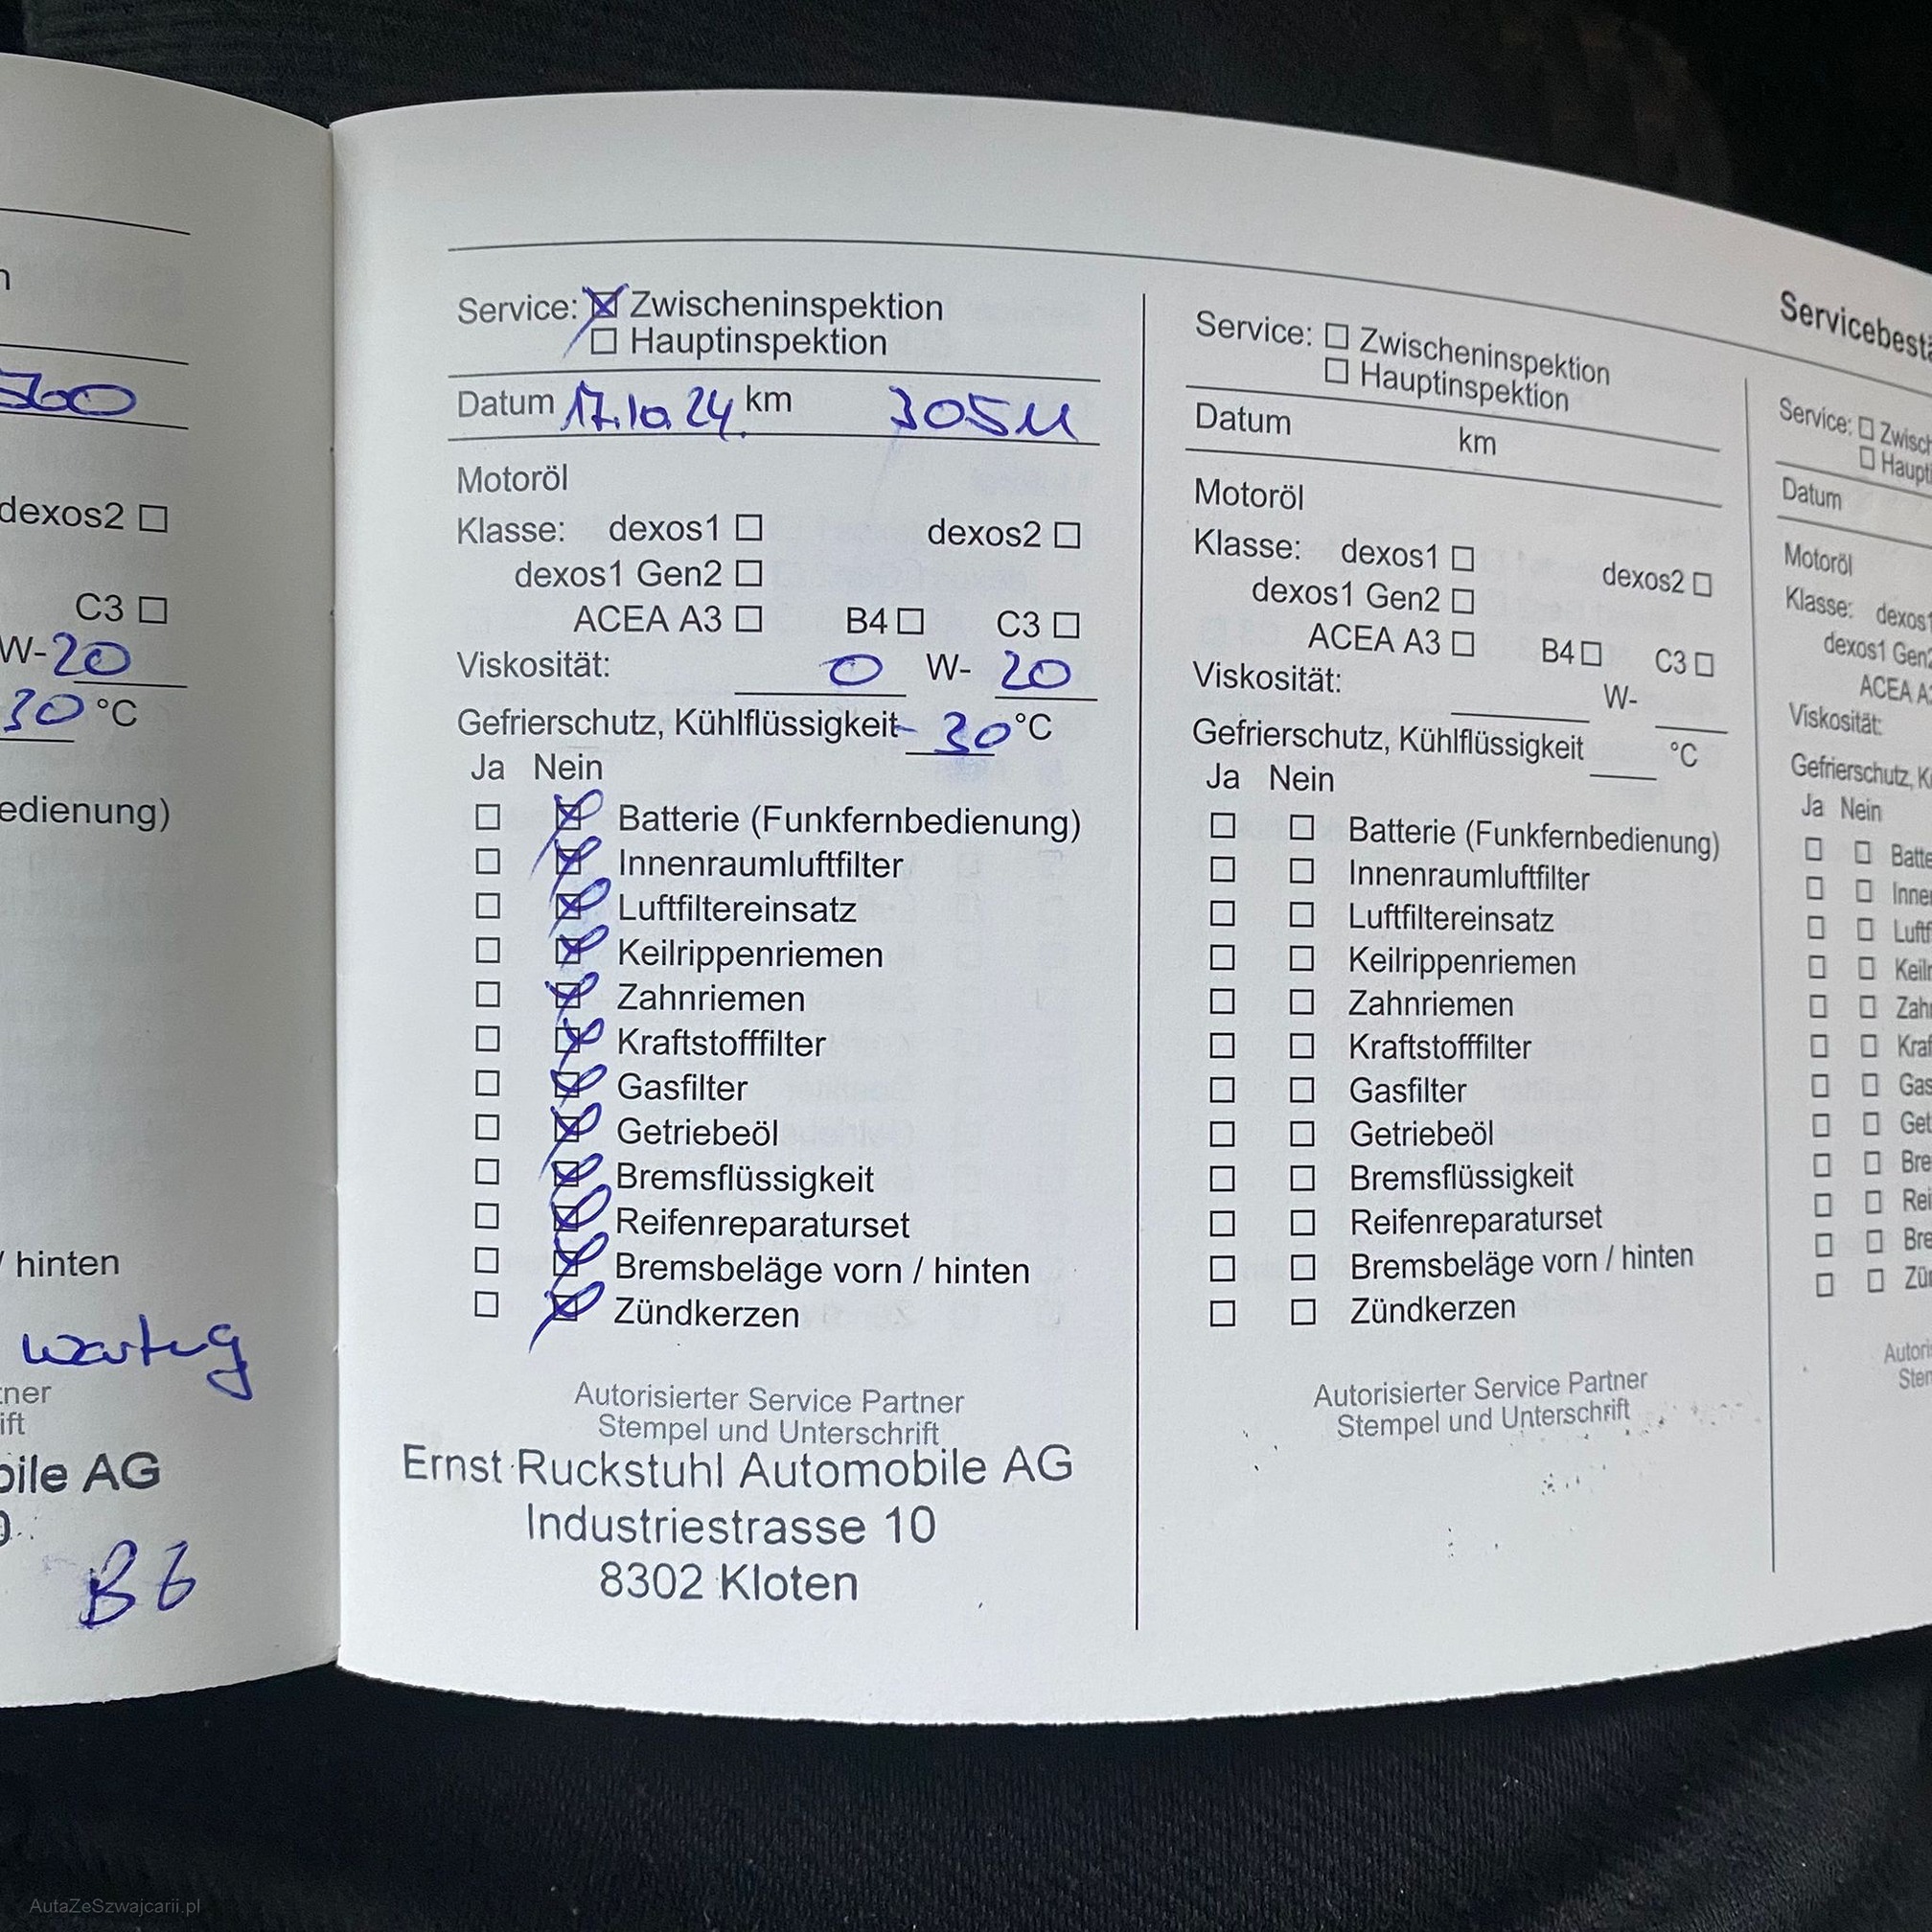 n
500
dexos2
C3
W-20
30 °C
edienung)
/ hinten
wartug
tner
ift
bile AG
B6
Service: Zwischeninspektion
Hauptinspektion
Datum 17.10.24 km
Motoröl
Klasse: dexos1 dexos2
dexos1 Gen2
ACEA A3 B4 C3
Viskosität: 0 W- 20
Gefrierschutz, Kühlflüssigkeit - 30 °C
Ja Nein
Batterie (Funkfernbedienung)
Innenraumluftfilter
Luftfiltereinsatz
Keilrippenriemen
Zahnriemen
Kraftstofffilter
Gasfilter
Getriebeöl
Bremsflüssigkeit
Reifenreparaturset
Bremsbeläge vorn / hinten
Zündkerzen
Autorisierter Service Partner
Stempel und Unterschrift
Ernst Ruckstuhl Automobile AG
Industriestrasse 10
8302 Kloten
Service: Zwischeninspektion
Hauptinspektion
Datum km
Motoröl
Klasse: dexos1 dexos2
dexos1 Gen2
ACEA A3 B4 C3
Viskosität: W-
Gefrierschutz, Kühlflüssigkeit °C
Ja Nein
Batterie (Funkfernbedienung)
Innenraumluftfilter
Luftfiltereinsatz
Keilrippenriemen
Zahnriemen
Kraftstofffilter
Gasfilter
Getriebeöl
Bremsflüssigkeit
Reifenreparaturset
Bremsbeläge vorn / hinten
Zündkerzen
Autorisierter Service Partner
Stempel und Unterschrift
Servicebestä
Service: Zwisch
Haupti
Datum
Motoröl
Klasse: dexos1
dexos1 Gen2
ACEA A3
Viskosität:
Gefrierschutz, Kü
Ja Nein
Batte
Inner
Luftf
Keilr
Zahr
Kraf
Gas
Get
Bre
Rei
Bre
Zün
Autori
Sten
AutaZeSzwajcarii.pl